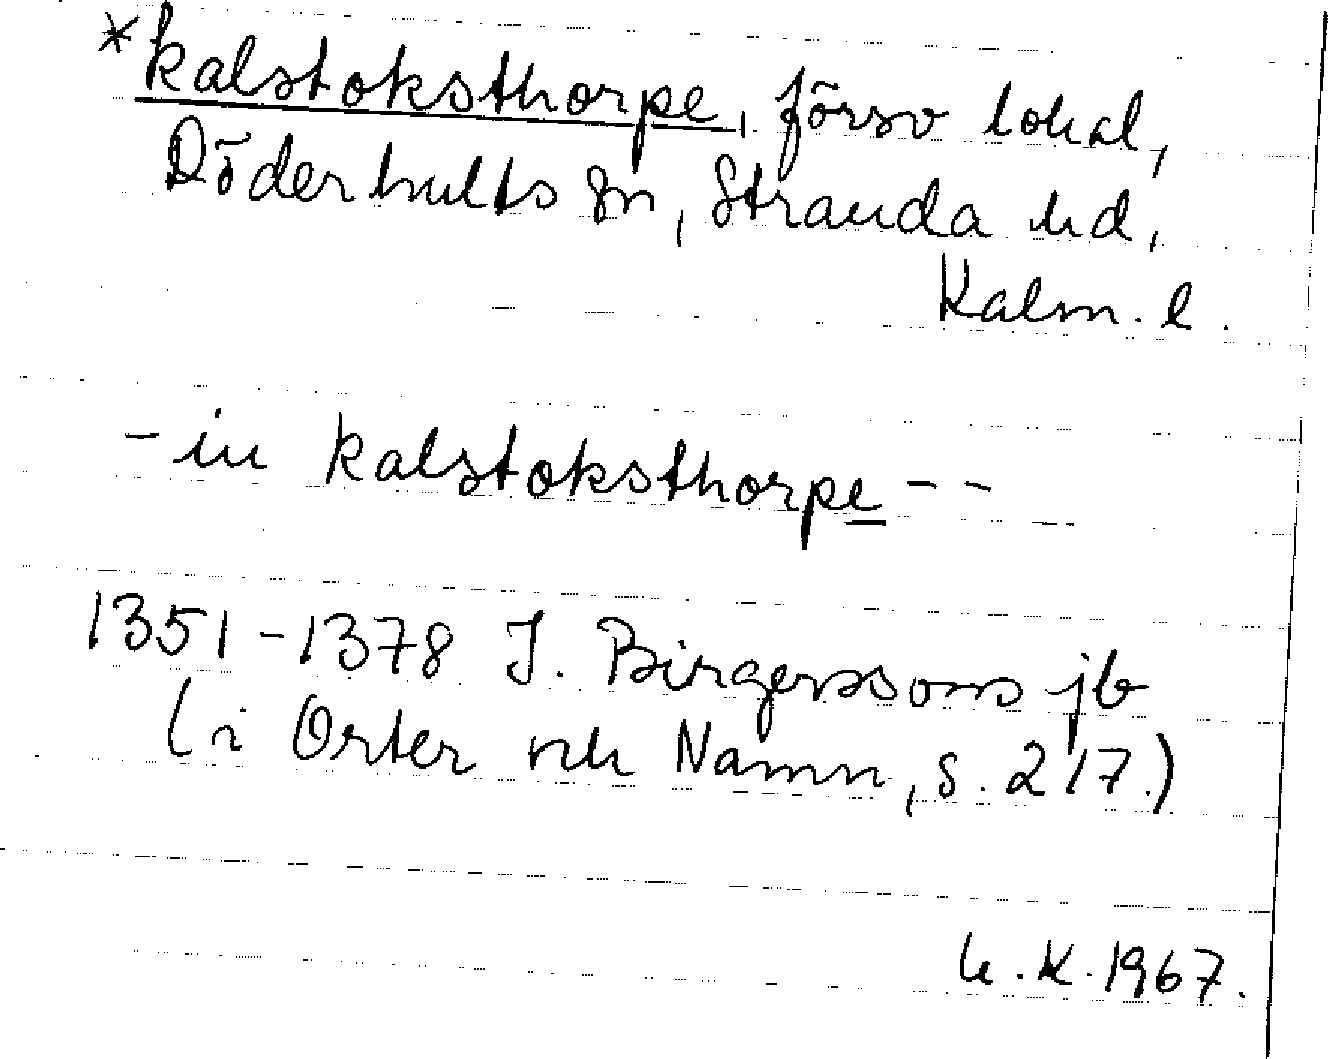 *kalstoksthorpe, försv lokal,
Döderhults sn, Stranda hd,
Kalm. l.
- in kalstoksthorpe - -
1351-1378 J. Birgerssons jb
(i Orter och Namn, s. 217.)
K. 1967.